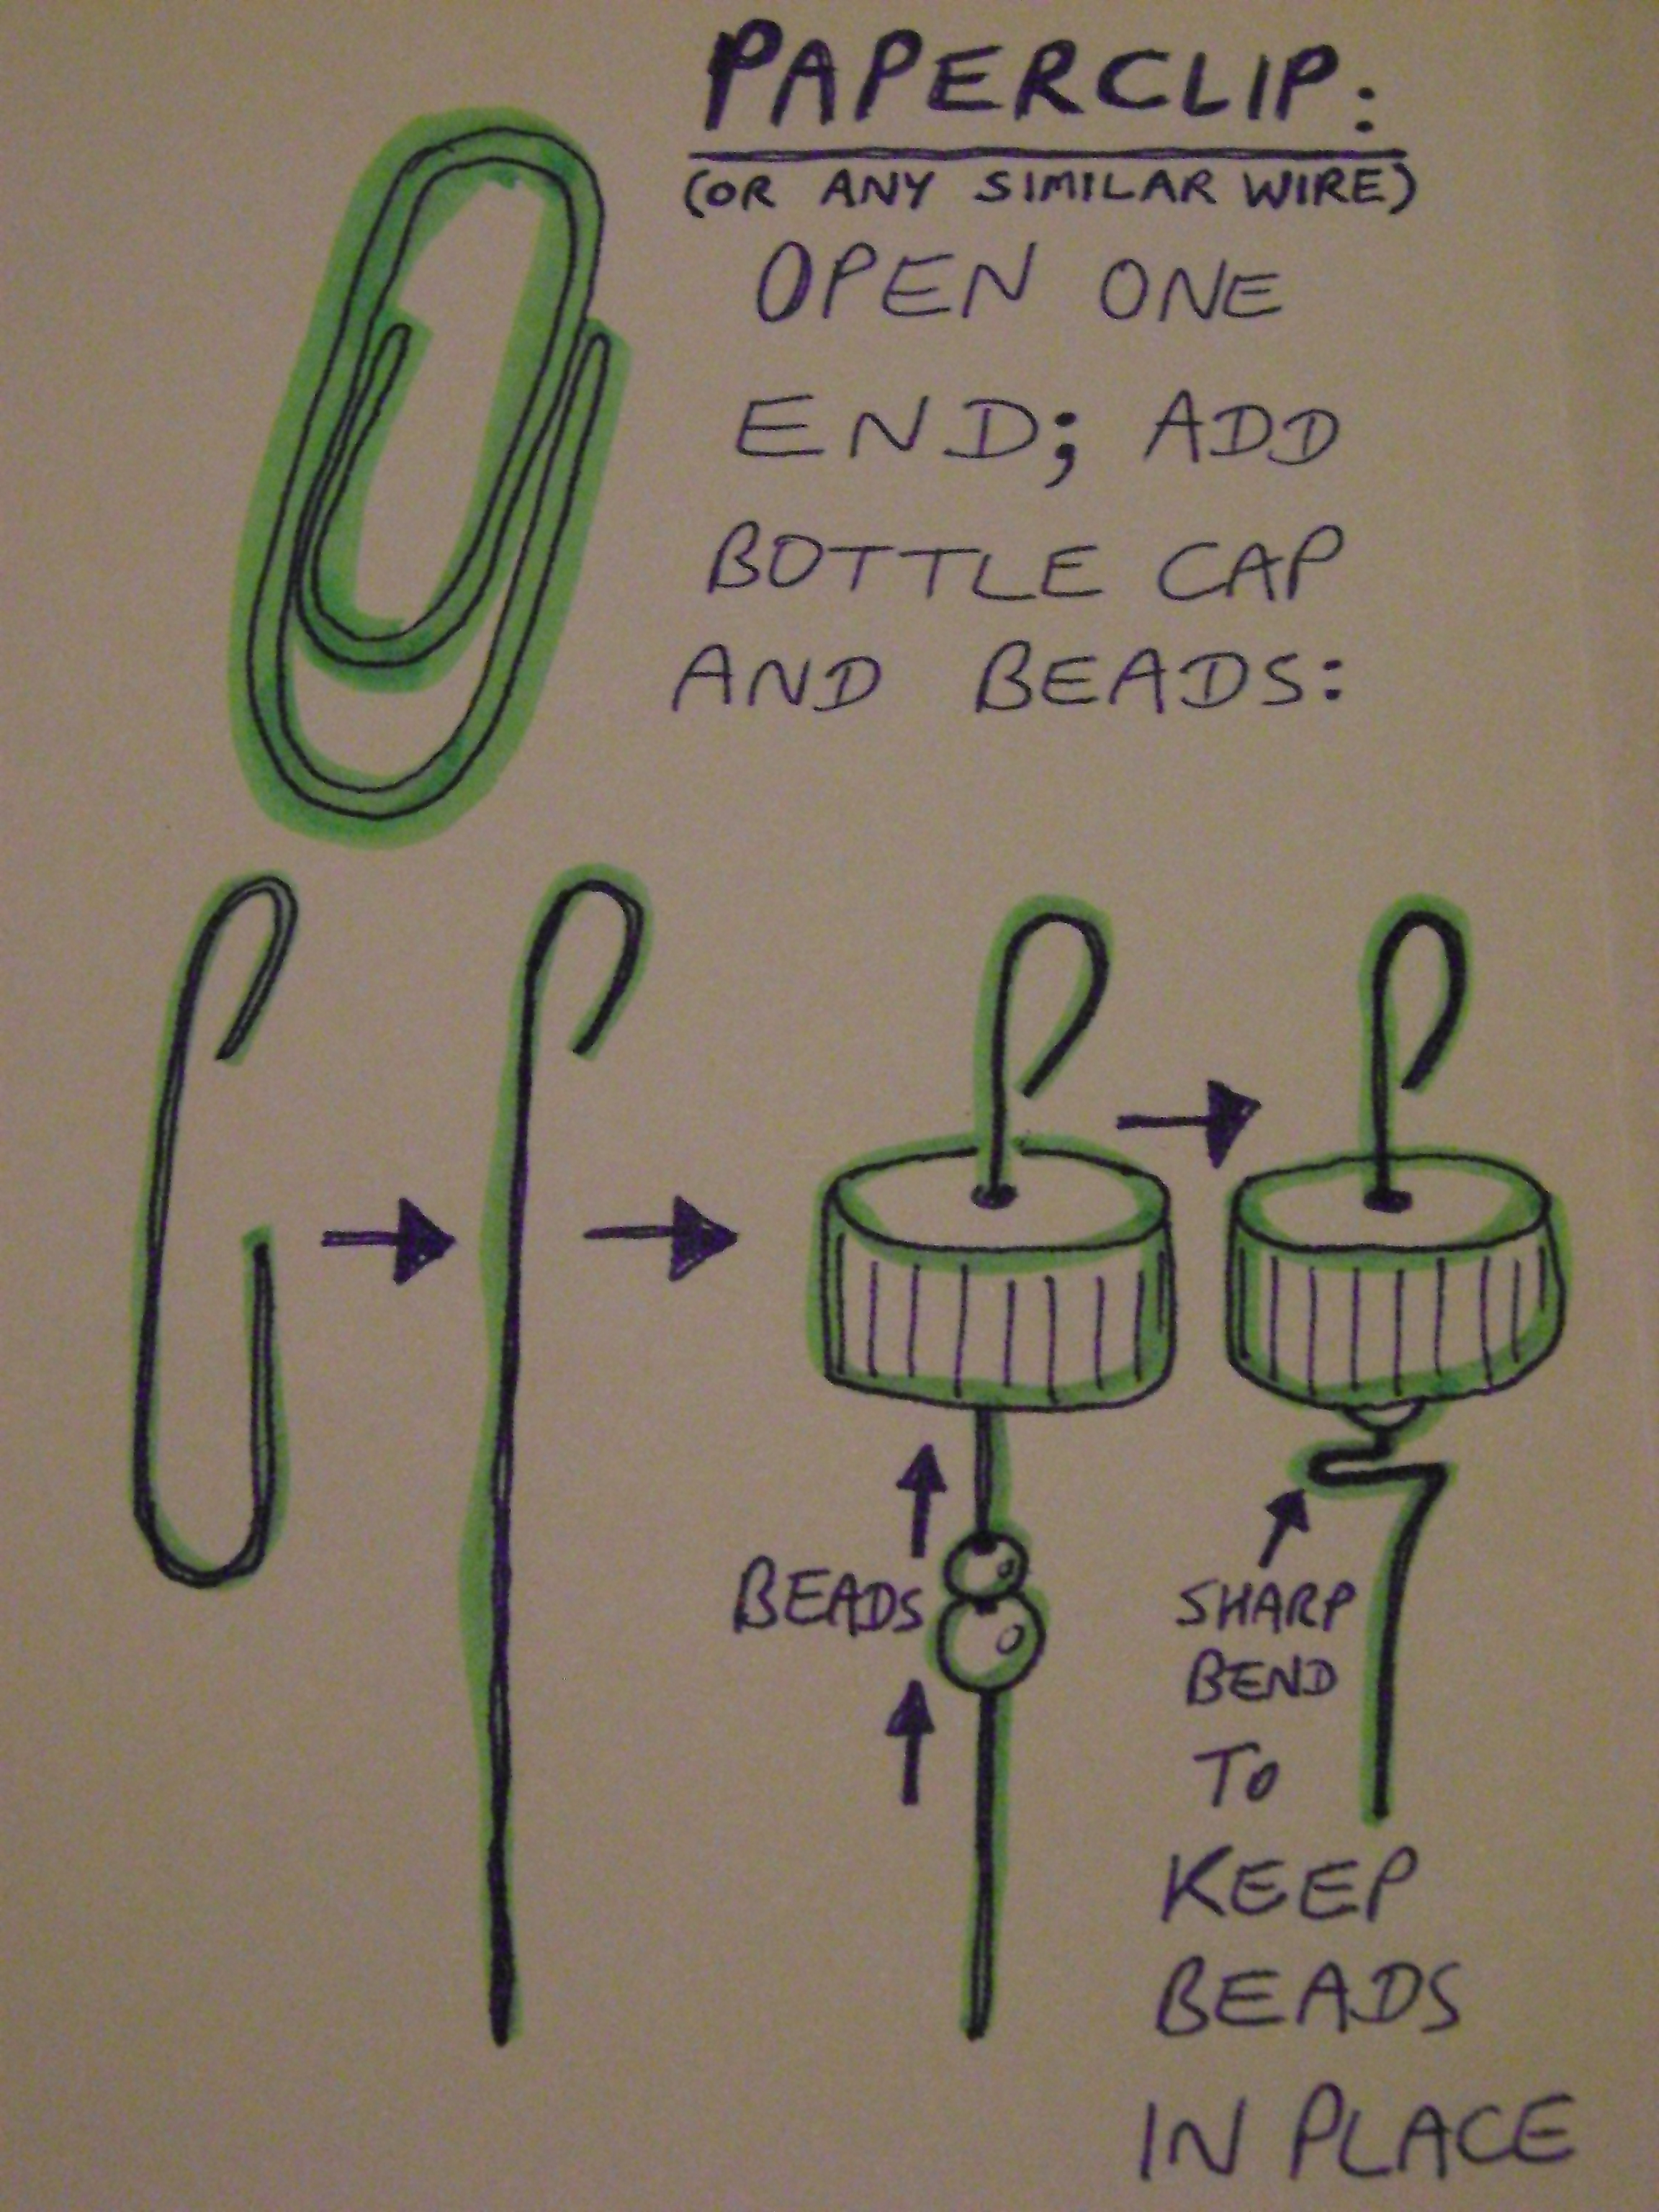 PAPERCLIP:
(OR ANY SIMILAR WIRE)
OPEN ONE
END; ADD
BOTTLE CAP
AND BEADS:
BEADS
SHARP
BEND
TO
KEEP
BEADS
IN PLACE